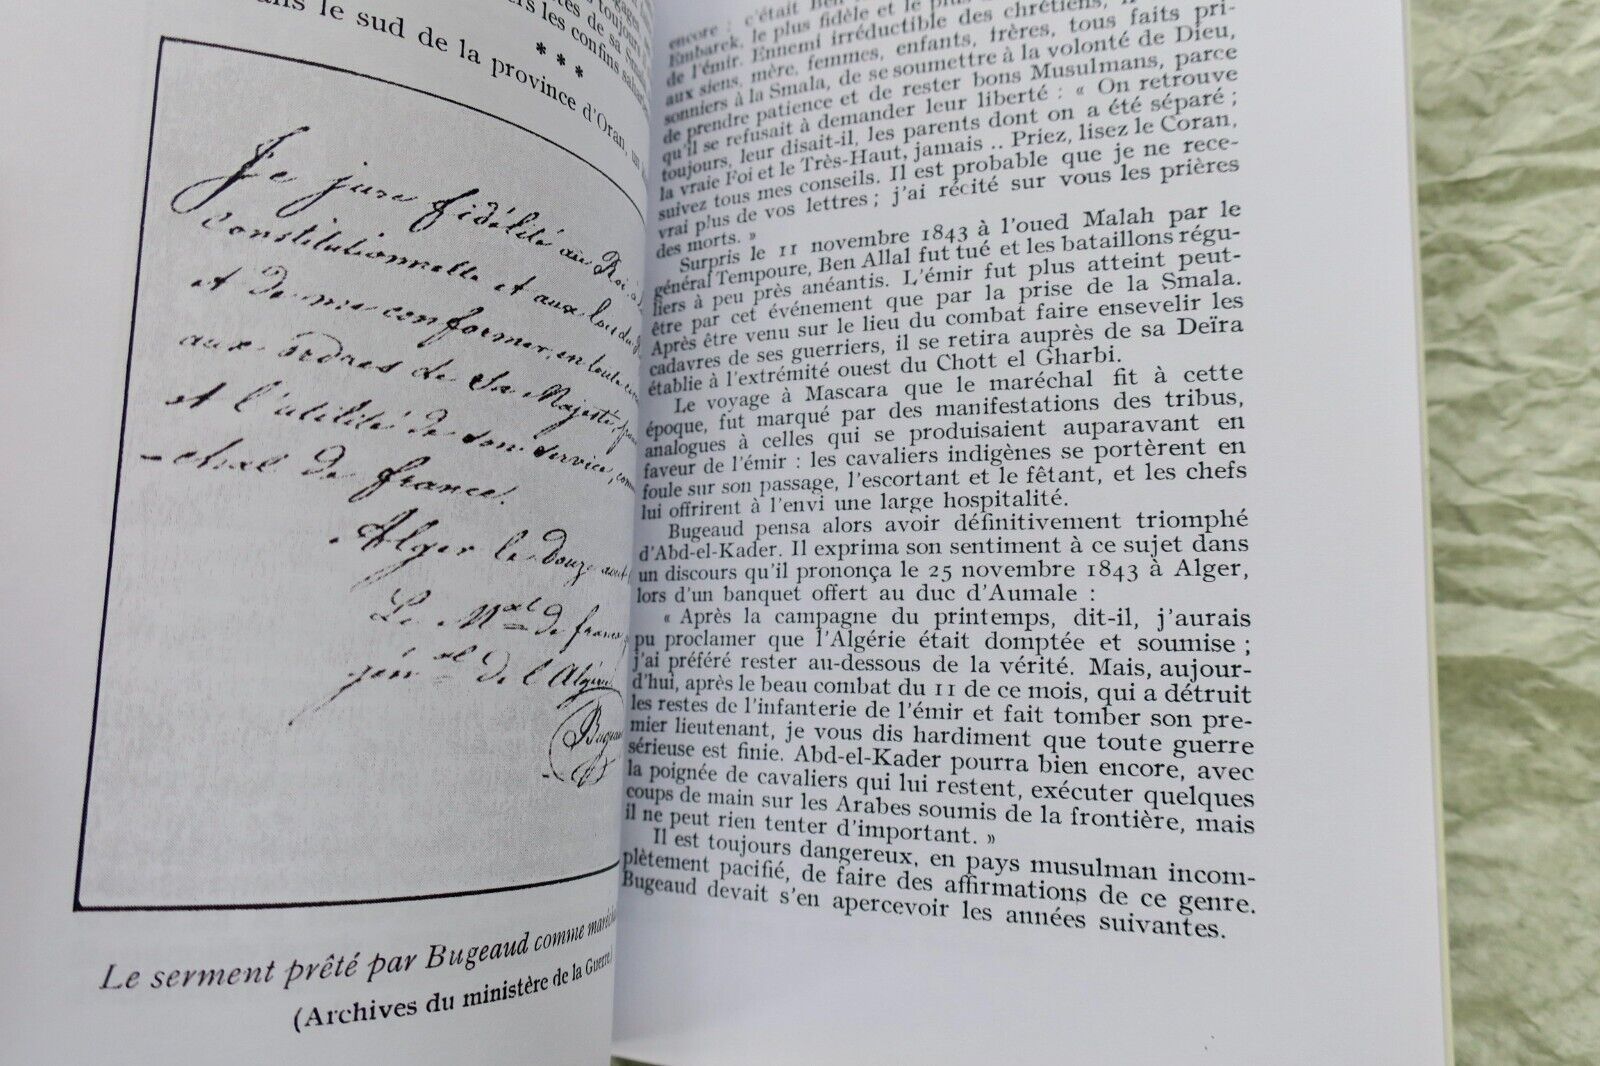 toujours
tes de sa Smala
ers les confins
* * *
ans le sud de la province d'Oran, un
Je jure fidélité au Roi
constitutionnelle et aux lois du
et de me conformer, en toute
aux ordres de Sa Majesté,
et l'utilité de son service, comme
-chxl de france.
Alger le douze aout
Le Mxal de france
génxal de l'Algérie
Bugeaud
Le serment prêté par Bugeaud comme
(Archives du ministère de la Guerre)
encore : c'était Ben
Embarek, le plus fidèle et le plus
de l'émir. Ennemi irréductible des chrétiens,
aux siens, mère, femmes, enfants, frères, tous faits pri-
sonniers à la Smala, de se soumettre à la volonté de Dieu,
de prendre patience et de rester bons Musulmans, parce
qu'il se refusait à demander leur liberté : « On retrouve
toujours, leur disait-il, les parents dont on a été séparé ;
la vraie Foi et le Très-Haut, jamais .. Priez, lisez le Coran,
suivez tous mes conseils. Il est probable que je ne rece-
vrai plus de vos lettres ; j'ai récité sur vous les prières
des morts. »
Surpris le 11 novembre 1843 à l'oued Malah par le
général Tempoure, Ben Allal fut tué et les bataillons régu-
liers à peu près anéantis. L'émir fut plus atteint peut-
être par cet événement que par la prise de la Smala.
Après être venu sur le lieu du combat faire ensevelir les
cadavres de ses guerriers, il se retira auprès de sa Deïra
établie à l'extrémité ouest du Chott el Gharbi.
Le voyage à Mascara que le maréchal fit à cette
époque, fut marqué par des manifestations des tribus,
analogues à celles qui se produisaient auparavant en
faveur de l'émir : les cavaliers indigènes se portèrent en
foule sur son passage, l'escortant et le fêtant, et les chefs
lui offrirent à l'envi une large hospitalité.
Bugeaud pensa alors avoir définitivement triomphé
d'Abd-el-Kader. Il exprima son sentiment à ce sujet dans
un discours qu'il prononça le 25 novembre 1843 à Alger,
lors d'un banquet offert au duc d'Aumale :
« Après la campagne du printemps, dit-il, j'aurais
pu proclamer que l'Algérie était domptée et soumise ;
j'ai préféré rester au-dessous de la vérité. Mais, aujour-
d'hui, après le beau combat du 11 de ce mois, qui a détruit
les restes de l'infanterie de l'émir et fait tomber son pre-
mier lieutenant, je vous dis hardiment que toute guerre
sérieuse est finie. Abd-el-Kader pourra bien encore, avec
la poignée de cavaliers qui lui restent, exécuter quelques
coups de main sur les Arabes soumis de la frontière, mais
il ne peut rien tenter d'important. »
Il est toujours dangereux, en pays musulman incom-
plètement pacifié, de faire des affirmations de ce genre.
Bugeaud devait s'en apercevoir les années suivantes.